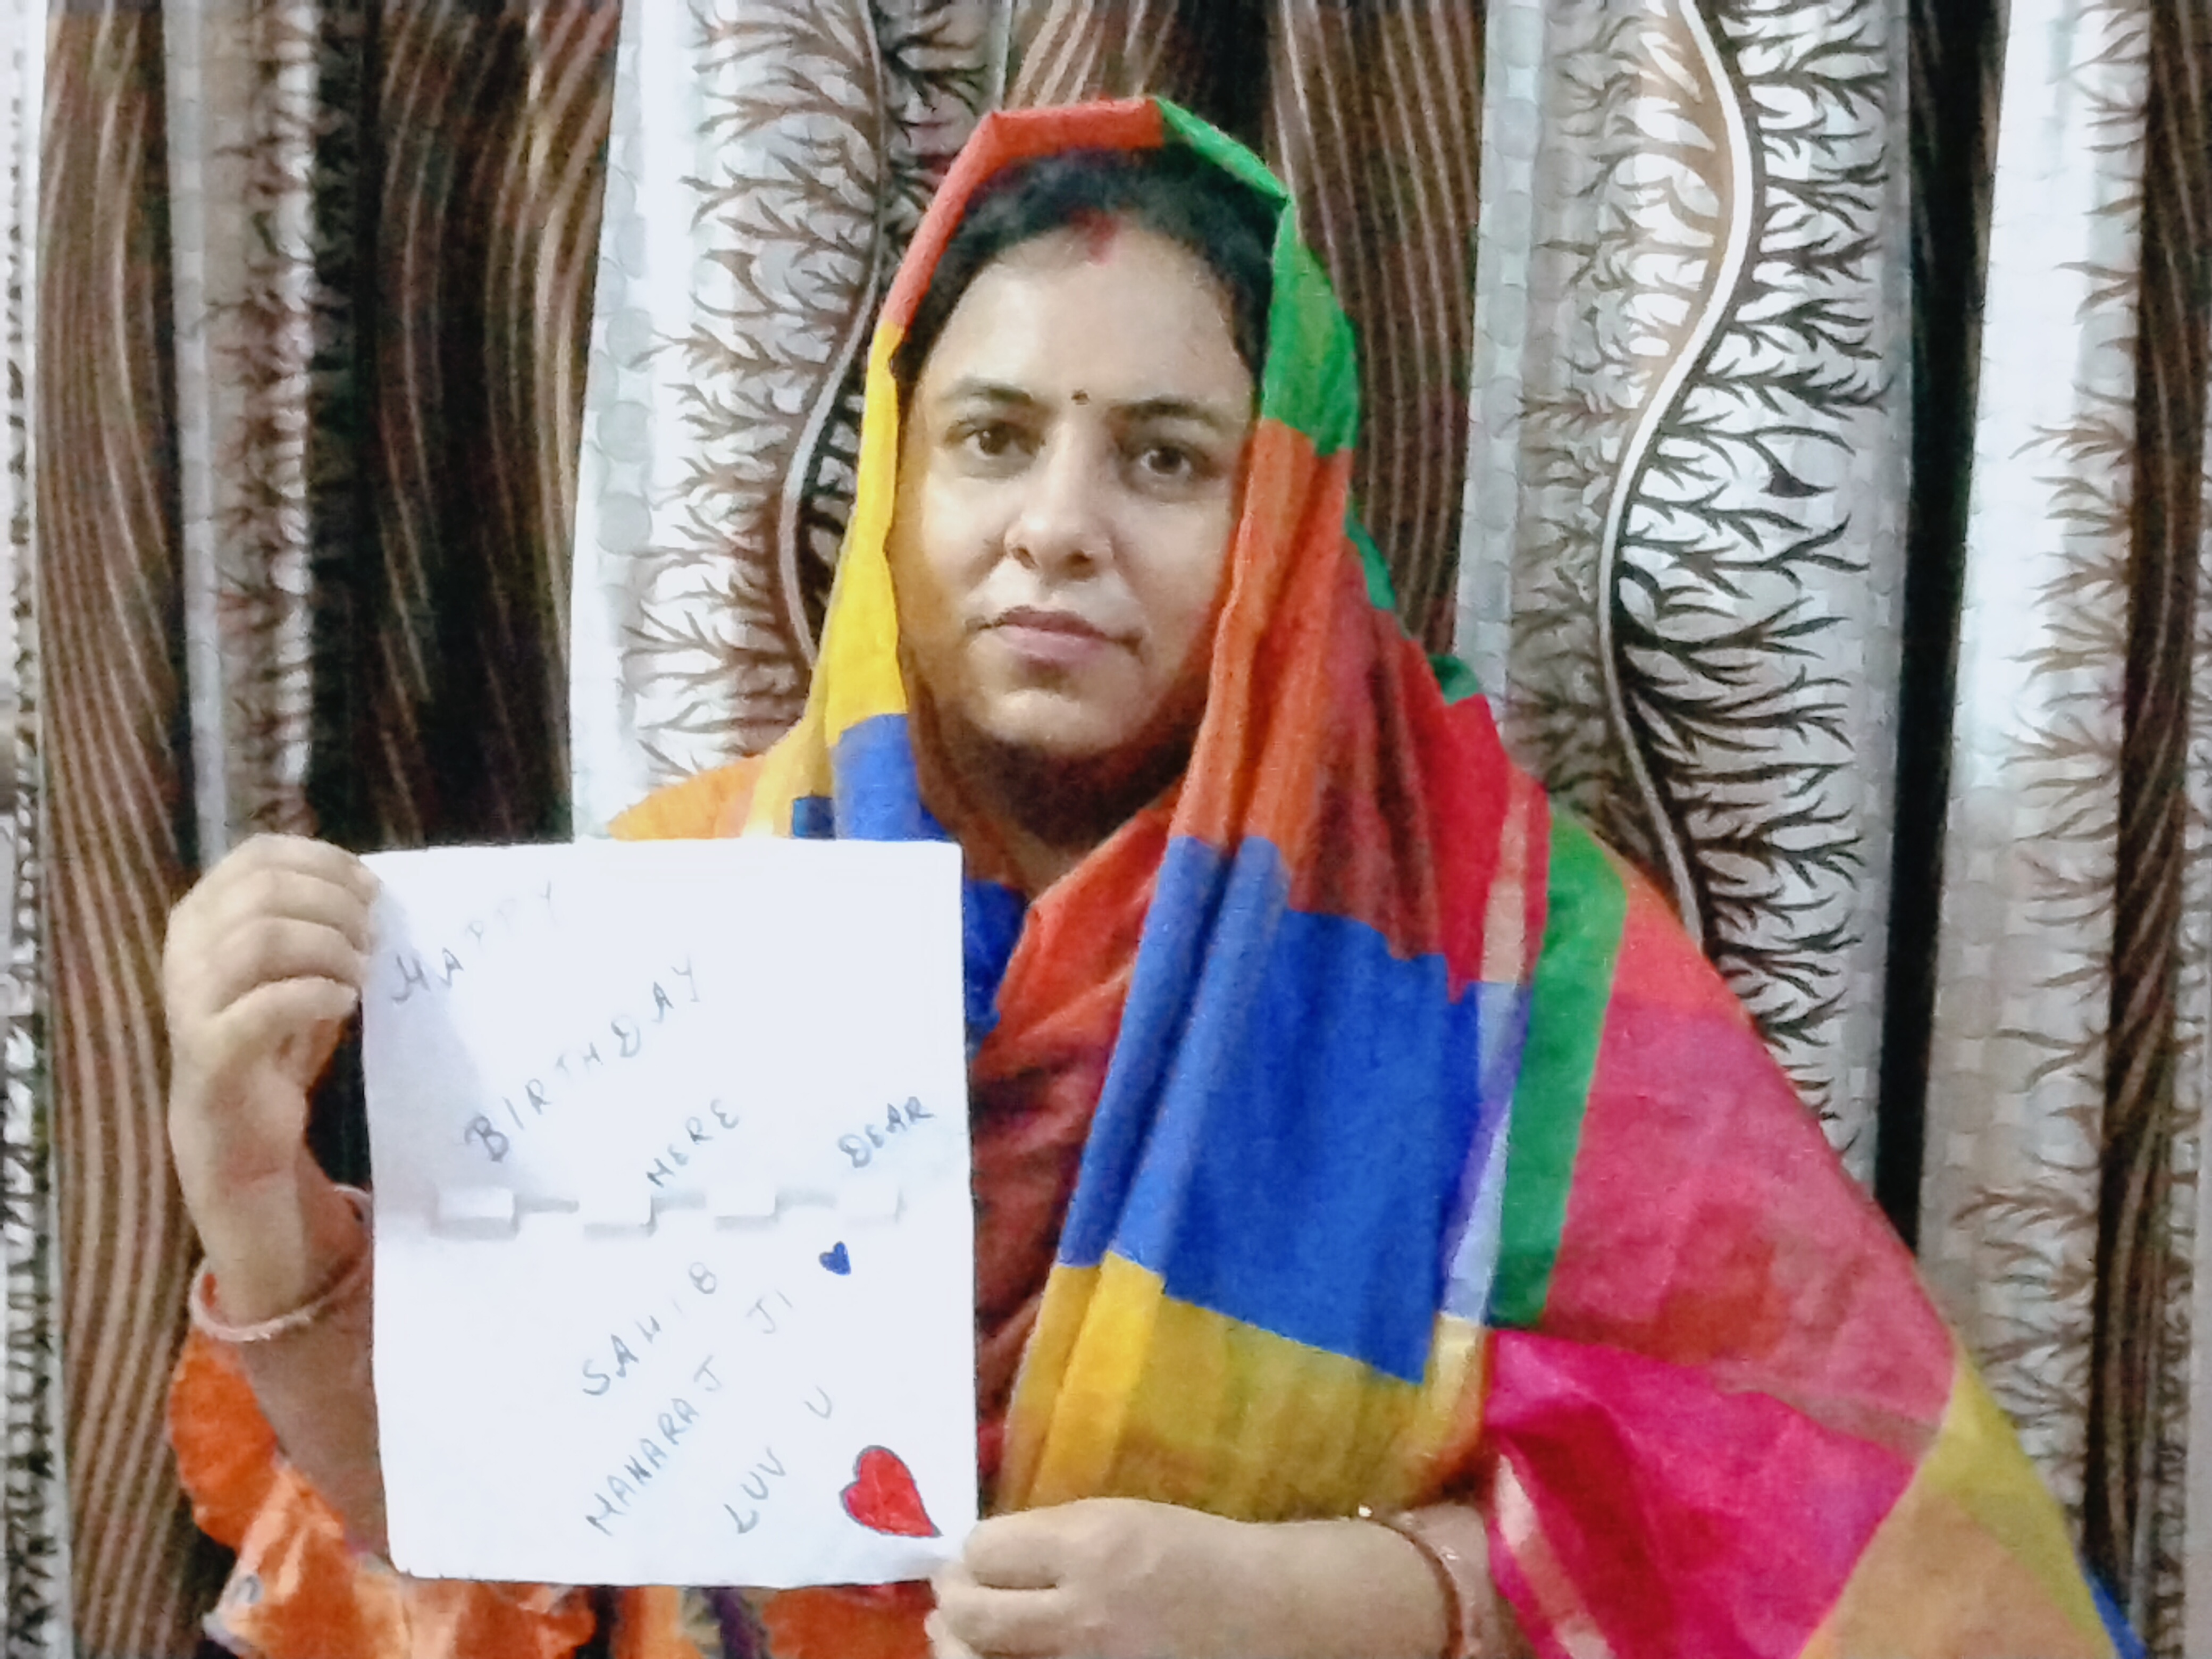 HAPPY
BIRTHDAY
MERE DEAR
SAHIB
MAHARAJ JI
LUV U